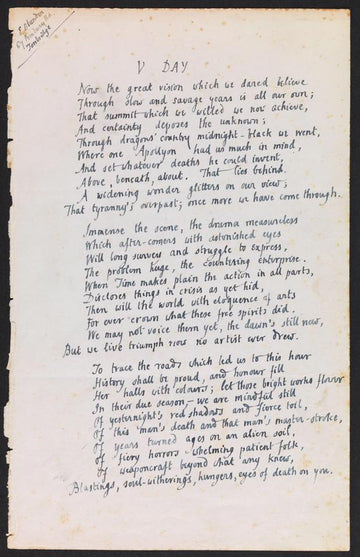 E. Blunden
Tonbridge
V DAY
Now the great vision which we dared believe
Through slow and savage years is all our own;
That summit which we willed we now achieve,
And certainty deposes the unknown;
Through dragons' country midnight-black we went,
Where one Apollyon had us much in mind,
And set whatever deaths he could invent,
Above, beneath, about. That lies behind.
A widening wonder glitters on our view;
That tyranny's overpast; once more we have come through.
Immense the scene, the drama measureless
Which after-comers with astonished eyes
Will long survey and struggle to express,
The problem huge, the countering enterprise.
When Time makes plain the action in all parts,
Discloses things in crisis as yet hid,
Then will the world with eloquence of arts
For ever crown what these free spirits did.
We may not voice them yet, the dawn's still new,
But we live triumph now no artist ever drew.
To trace the roads which led us to this hour
History shall be proud, and honour fill
Her halls with colours; let those bright works flower
In their due season,– we are mindful still
Of yesternight's red shadows and fierce toil,
Of this man's death and that man's master-stroke,
Of years turned ages on an alien soil,
Of fiery horrors whelming patient folk,
Of weaponcraft beyond what any knew,
Blastings, soul-witherings, hungers, eyes of death on you.